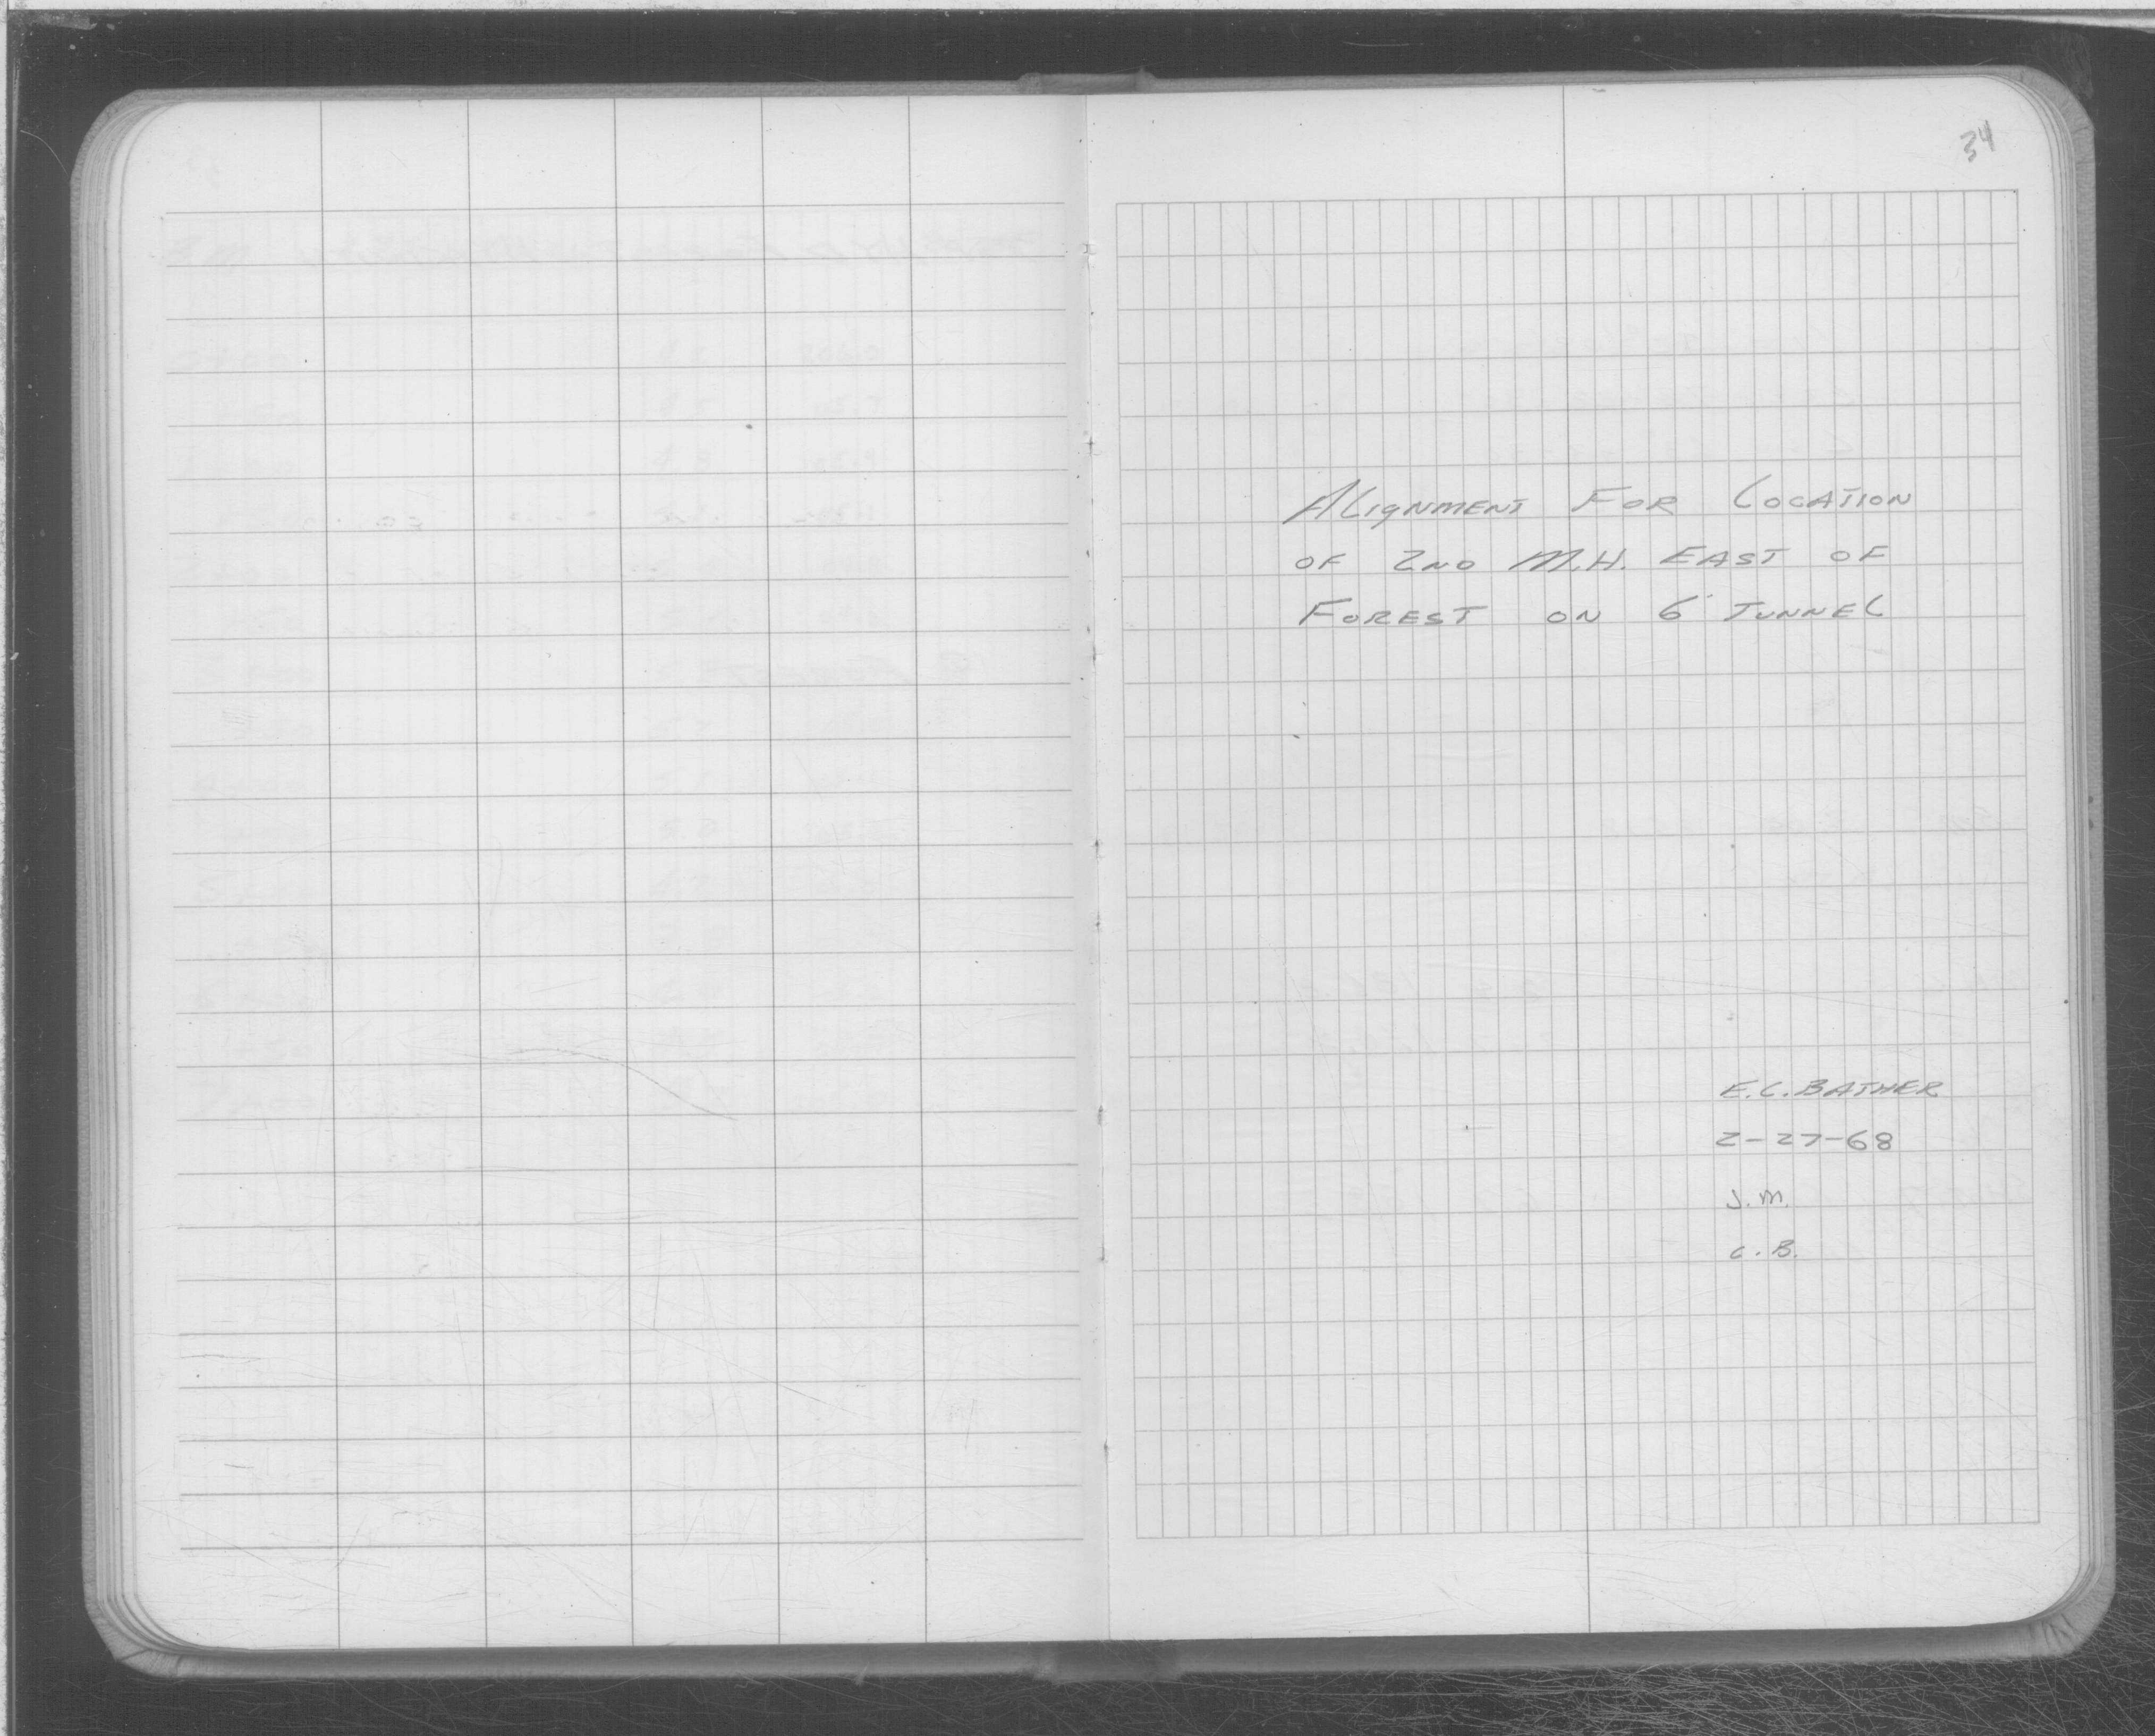 34
ALIGNMENT FOR LOCATION
OF 2ND M.H. EAST OF
FOREST ON 6' TUNNEL
E.C. BATHER
2-27-68
J.M.
C.B.